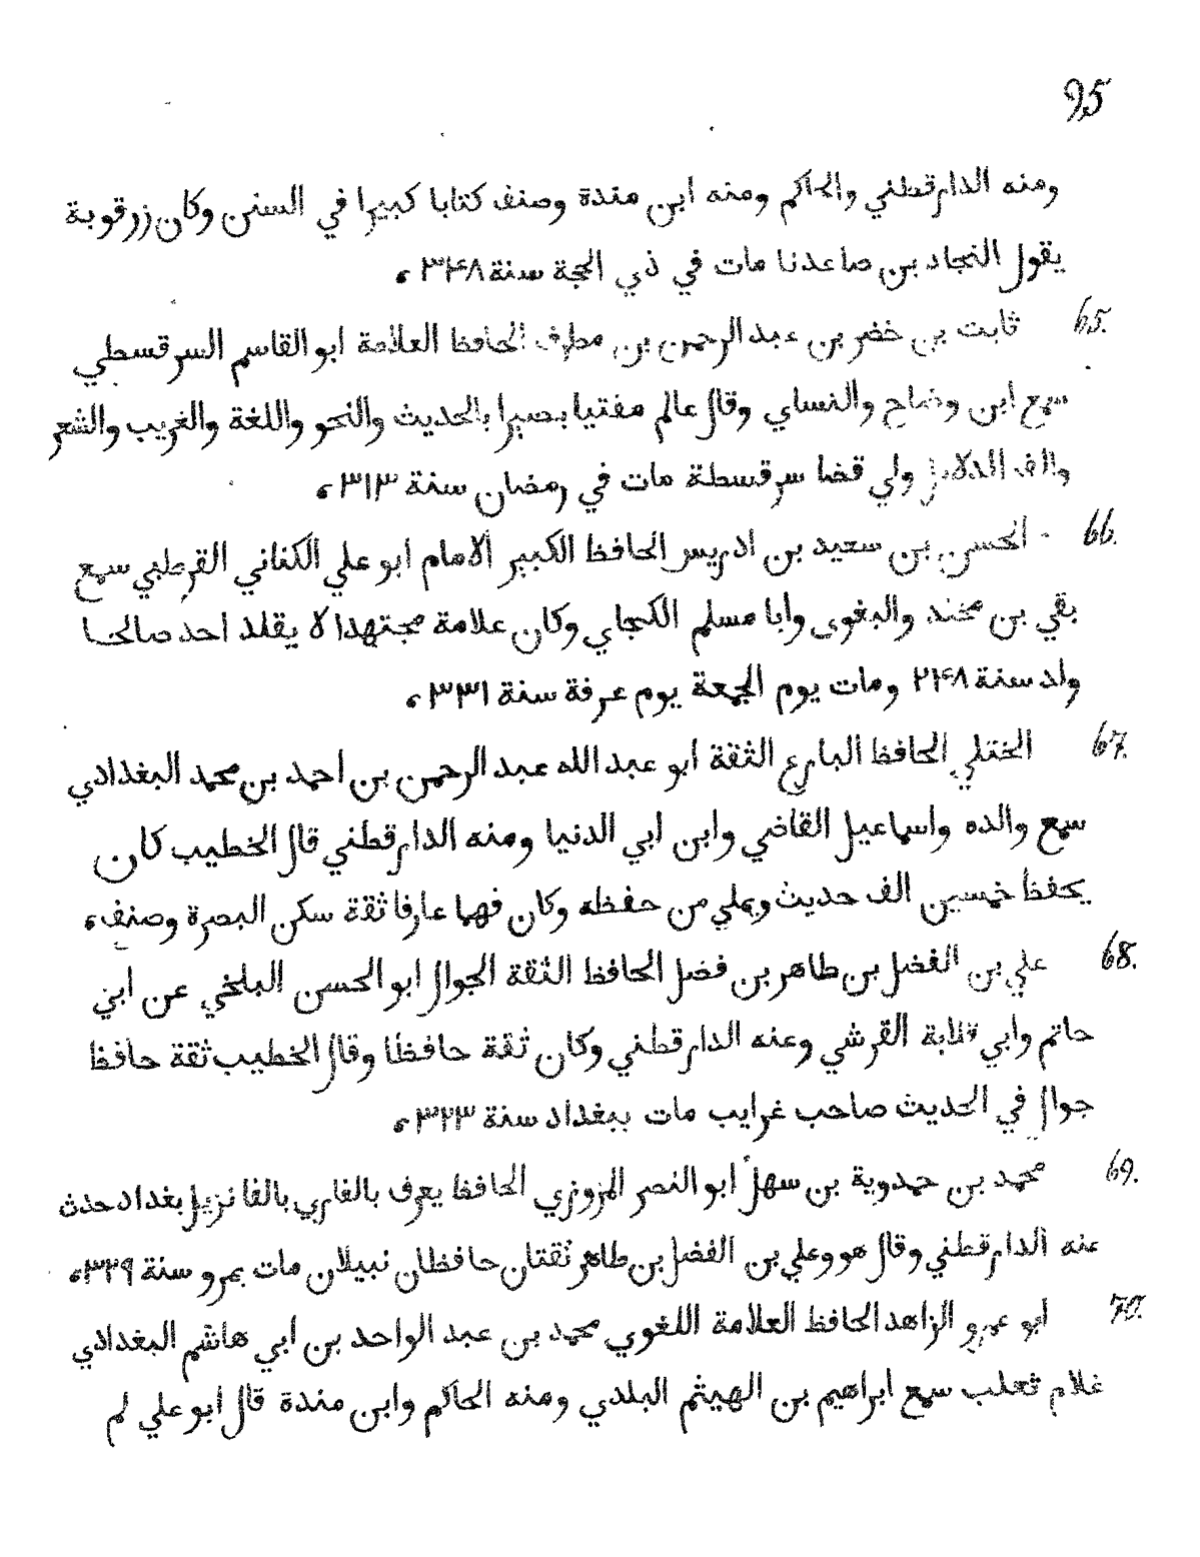 95
ومنه الدارقطني والحاكم ومنه ابن مندة وصنف كتابا كبيرا في السنن وكان زرقوية
يقول النجاد بن صاعدنا مات في ذي الحجة سنة ٣۴٨
65. ثابت بن خضر بن عبد الرحمن بن مطرف الحافظ العلامة ابو القاسم السرقسطي
سمع ابن وضاح والنساي وقال عالم مفتيا بصيرا بالحديث والنحو واللغة والغريب والشعر
والف الدلايل ولي قضا سرقسطة مات في رمضان سنة ٣١٣
66. الحسن بن سعيد بن ادريس الحافظ الكبير الامام ابو علي الكفاني القرطبي سمع
بقي بن مخند والبغوى وأبا مسلم الكجاي وكان علامة مجتهدا لا يقلد احد صالحا
ولد سنة ٢۴٨ ومات يوم الجمعة يوم عرفة سنة ٣٣١
67. الختلي الحافظ البارع الثقة ابو عبد الله عبد الرحمن بن احمد بن محمد البغدادي
سمع والده واسماعيل القاضي وابن ابي الدنيا ومنه الدارقطني قال الخطيب كان
يحفظ خمسين الف حديث ويملي من حفظه وكان فهما عارفا ثقة سكن البصرة وصنف
68. علي بن الفضل بن طاهر بن فضل الحافظ الثقة الجوال ابو الحسن البلخي عن ابي
حاتم وابي قلابة القرشي وعنه الدارقطني وكان ثقة حافظا وقال الخطيب ثقة حافظ
جوال في الحديث صاحب غرايب مات ببغداد سنة ٣٢٣
69. محمد بن حمدوية بن سهل ابو النصر المزوزي الحافظ يعرف بالغاري بالفا نزيل بغداد حدث
عنه الدارقطني وقال هو وعلي بن الفضل بن طاهر ثقتان حافظان نبيلان مات بمرو سنة ٣٢٩
70. ابو عمرو الزاهد الحافظ العلامة اللغوي محمد بن عبد الواحد بن ابي هاشم البغدادي
غلام ثعلب سمع ابراهيم بن الهيثم البلدي ومنه الحاكم وابن مندة قال ابو علي لم